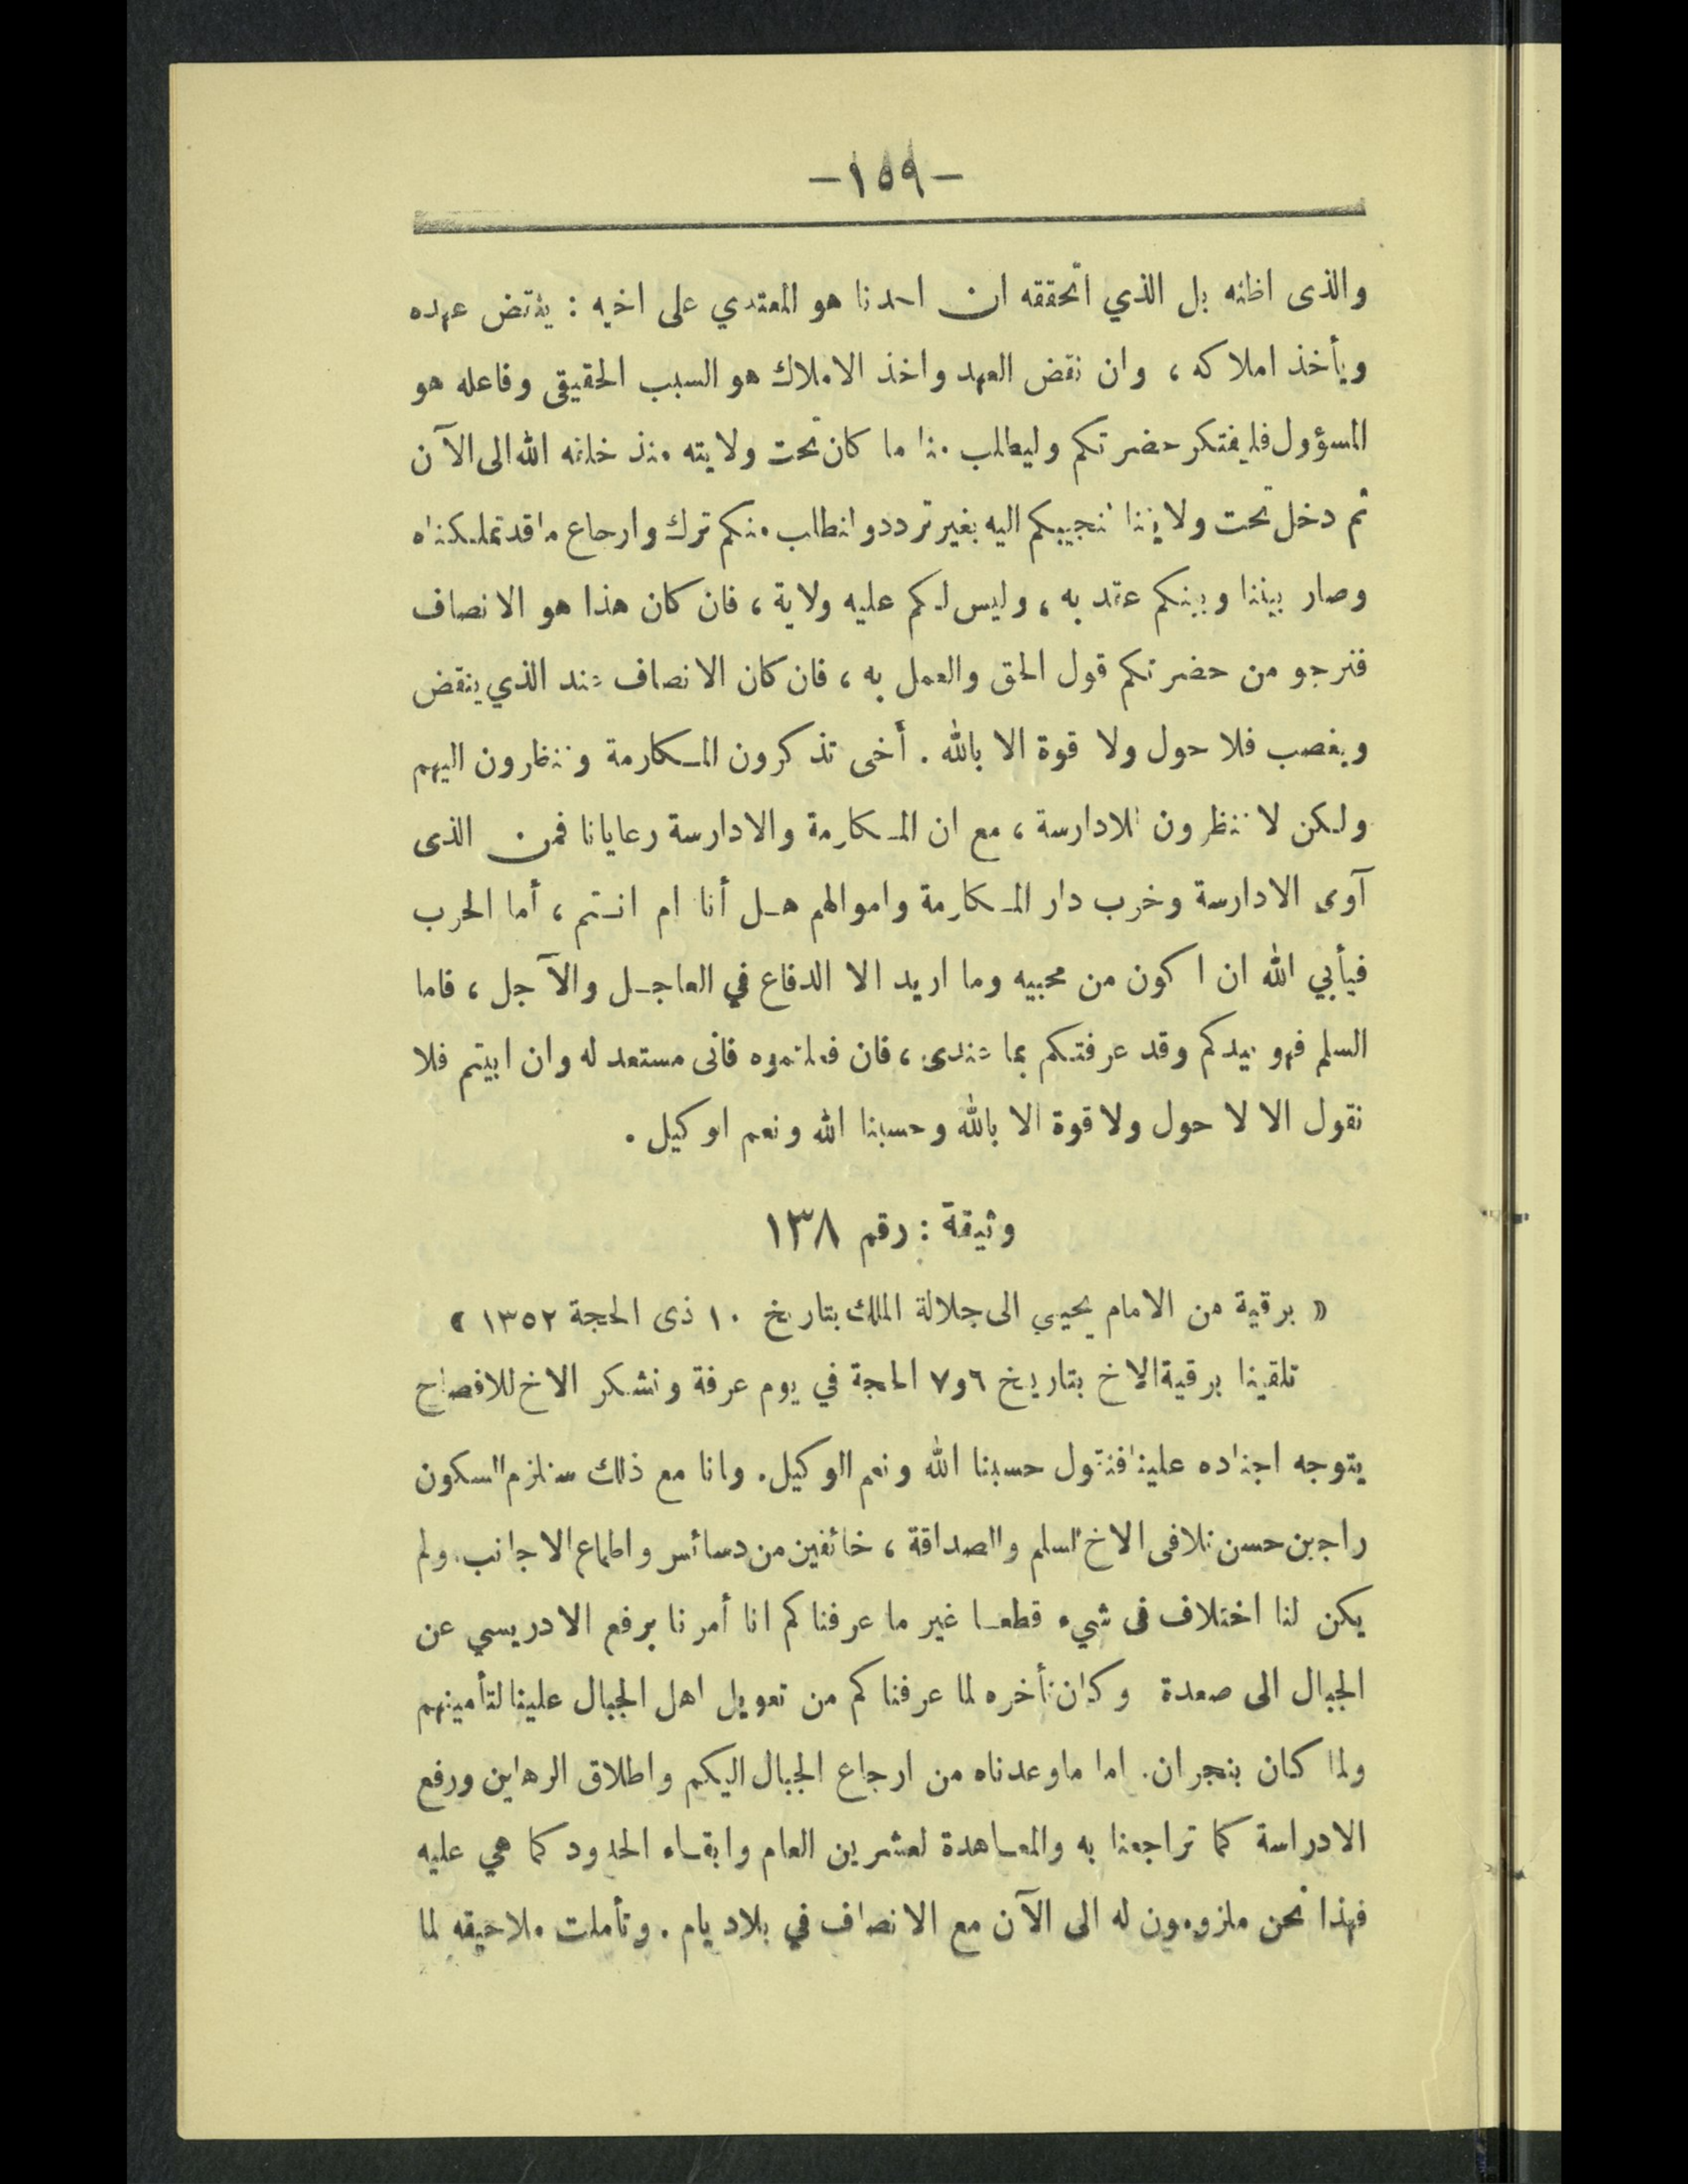 -١٥٩-
والذى اظنه بل الذي اتحققه ان احدنا هو المعتدي على اخيه : ينقض عهده
ويأخذ املاكه ، وان نقض العهد واخذ الاملاك هو السبب الحقيقى وفاعله هو
المسؤول فليفتكر حضرتكم وليطلب منا ما كان تحت ولايته منذ خلقه الله الى الآن
ثم دخل تحت ولايتنا لنجيبكم اليه بغير تردد وانطلب منكم ترك وارجاع ما قد تملكناه
وصار بيننا وبينكم عقد به ، وليس لكم عليه ولاية ، فان كان هذا هو الانصاف
فنرجو من حضرتكم قول الحق والعمل به ، فان كان الانصاف عند الذي ينقض
ويغصب فلا حول ولا قوة الا بالله . أخى تذكرون المكارمة وتنظرون اليهم
ولكن لا تنظرون للادارسة ، مع ان المكارمة والادارسة رعايانا فمن الذى
آوى الادارسة وخرب دار المكارمة واموالهم هل أنا ام انتم ، أما الحرب
فيأبي الله ان اكون من محبيه وما اريد الا الدفاع في العاجل والآجل ، فاما
السلم فهو بيدكم وقد عرفتكم بما عندى ، فان فعلتموه فانى مستعد له وان ابيتم فلا
نقول الا لا حول ولا قوة الا بالله وحسبنا الله ونعم الوكيل .
وثيقة : رقم ١٣٨
« برقية من الامام يحيي الى جلالة الملك بتاريخ ١٠ ذى الحجة ١٣٥٢ »
تلقينا برقية الاخ بتاريخ ٦و٧ الحجة في يوم عرفة ونشكر الاخ للافصاح
يتوجه اجناده علينا فنقول حسبنا الله ونعم الوكيل. وانا مع ذلك سنلزم السكون
راجين حسن تلافى الاخ السلم والصداقة ، خائفين من دسائس واطماع الاجانب. ولم
يكن لنا اختلاف فى شيء قطعا غير ما عرفناكم انا أمرنا برفع الادريسي عن
الجبال الى صعدة وكان تأخره لما عرفناكم من تعويل اهل الجبال علينا لتأمينهم
ولما كان بنجران. اما ما وعدناه من ارجاع الجبال اليكم واطلاق الرهاين ورفع
الادراسة كما تراجعنا به والمعاهدة لعشرين العام وابقاء الحدود كما هي عليه
فهذا نحن ملزومون له الى الآن مع الانصاف في بلاد يام . وتأملت ملاحيقه لما